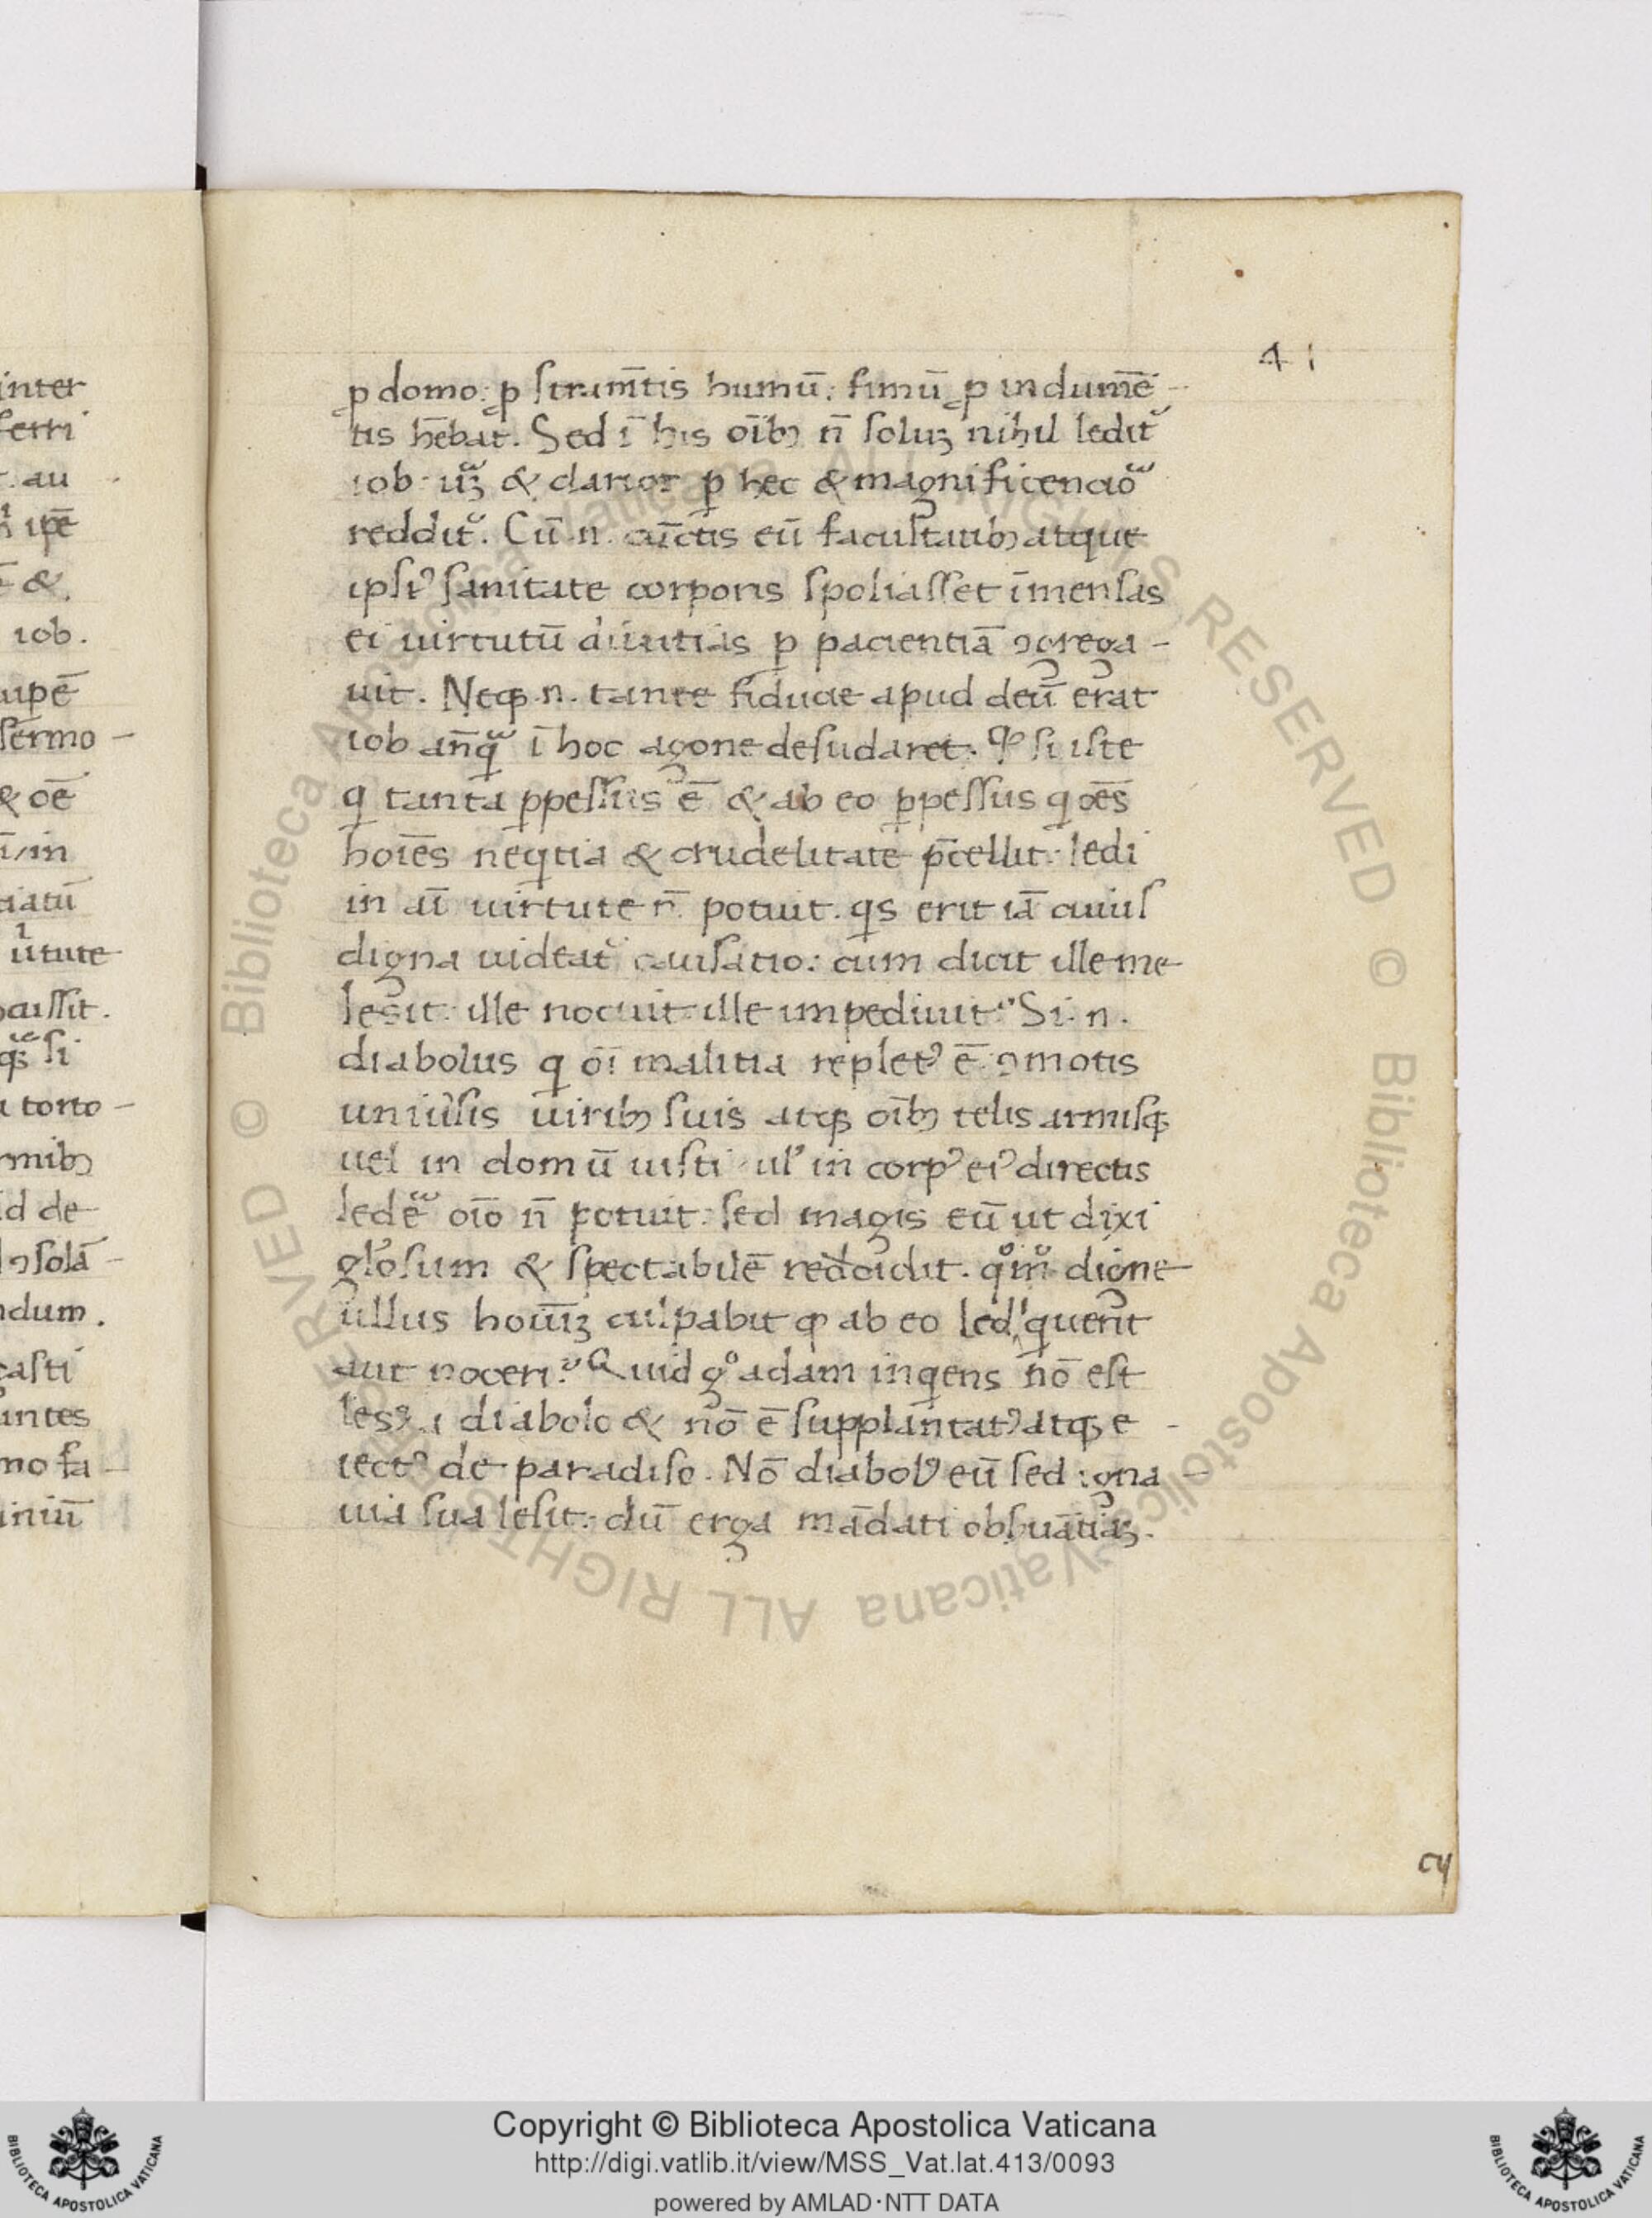 41
ꝓ domo: ꝓ stram̄tis humū: fimū ꝓ indumē-
tis hēbat. Sed ī his oīb; n̄ soluꝫ nihil ledit᷑
iob: uꝫ & clarior ꝑ hec & magnificencio᷑
reddit᷑. Cū .n. cūctis eū facultatib; atque
ipsiꝰ sanitate corporis spoliasset īmensas
ei uirtutū diuitias ꝑ pacientiā ꝯgrega-
uit. Neqꝫ .n. tante fiducie apud deū erat
iob an̄q̄ ī hoc agone desudaret. Qꝫ si iste
q tanta ꝑpessus ē & ab eo ꝑpessus q oēs
hoīes neq̇tia & crudelitate p̄cellit: ledi
in aī uirtute n̄ potuit. qs erit iā cuius
digna uideat᷑ causatio: cum dicit ille me
lesit: ille nocuit: ille impediuit? Si .n.
diabolus q oī malitia repletꝰ ē: ꝯmotis
uniu̇sis uirib; suis atqꝫ oīb; telis armisqꝫ
uel in domū iusti ul᷑ in corpꝰ eiꝰ directis
ledē oīo n̄ potuit: sed magis eū ut dixi
glo᷑sum & spectabilē reddidit. qͦmͦ digne
ullus hoīuꝫ culpabit ꝙ ab eo ledi q̇uerit
aut noceri? Quid gͦ adam inqͥens nō est
lesꝰ a diabolo & nō ē supplantatꝰ atqꝫ e-
iectꝰ de paradiso. Nō diabolꝰ eū sed igna-
uia sua lesit: dū erga mādati obs̄uātiaꝫ.
inter
ferri
au
ipē
&
iob.
sermo-
& oē
in
tiatū
u̇tute
cussit.
si
torto-
rmib;
de
ꝯsolā-
dum.
casti
untes
mo fa-
iniū
Copyright © Biblioteca Apostolica Vaticana
http://digi.vatlib.it/view/MSS_Vat.lat.413/0093
powered by AMLAD·NTT DATA
© Biblioteca Apostolica Vaticana ALL RIGHTS RESERVED
BIBLIOTECA APOSTOLICA VATICANA
BIBLIOTECA APOSTOLICA VATICANA